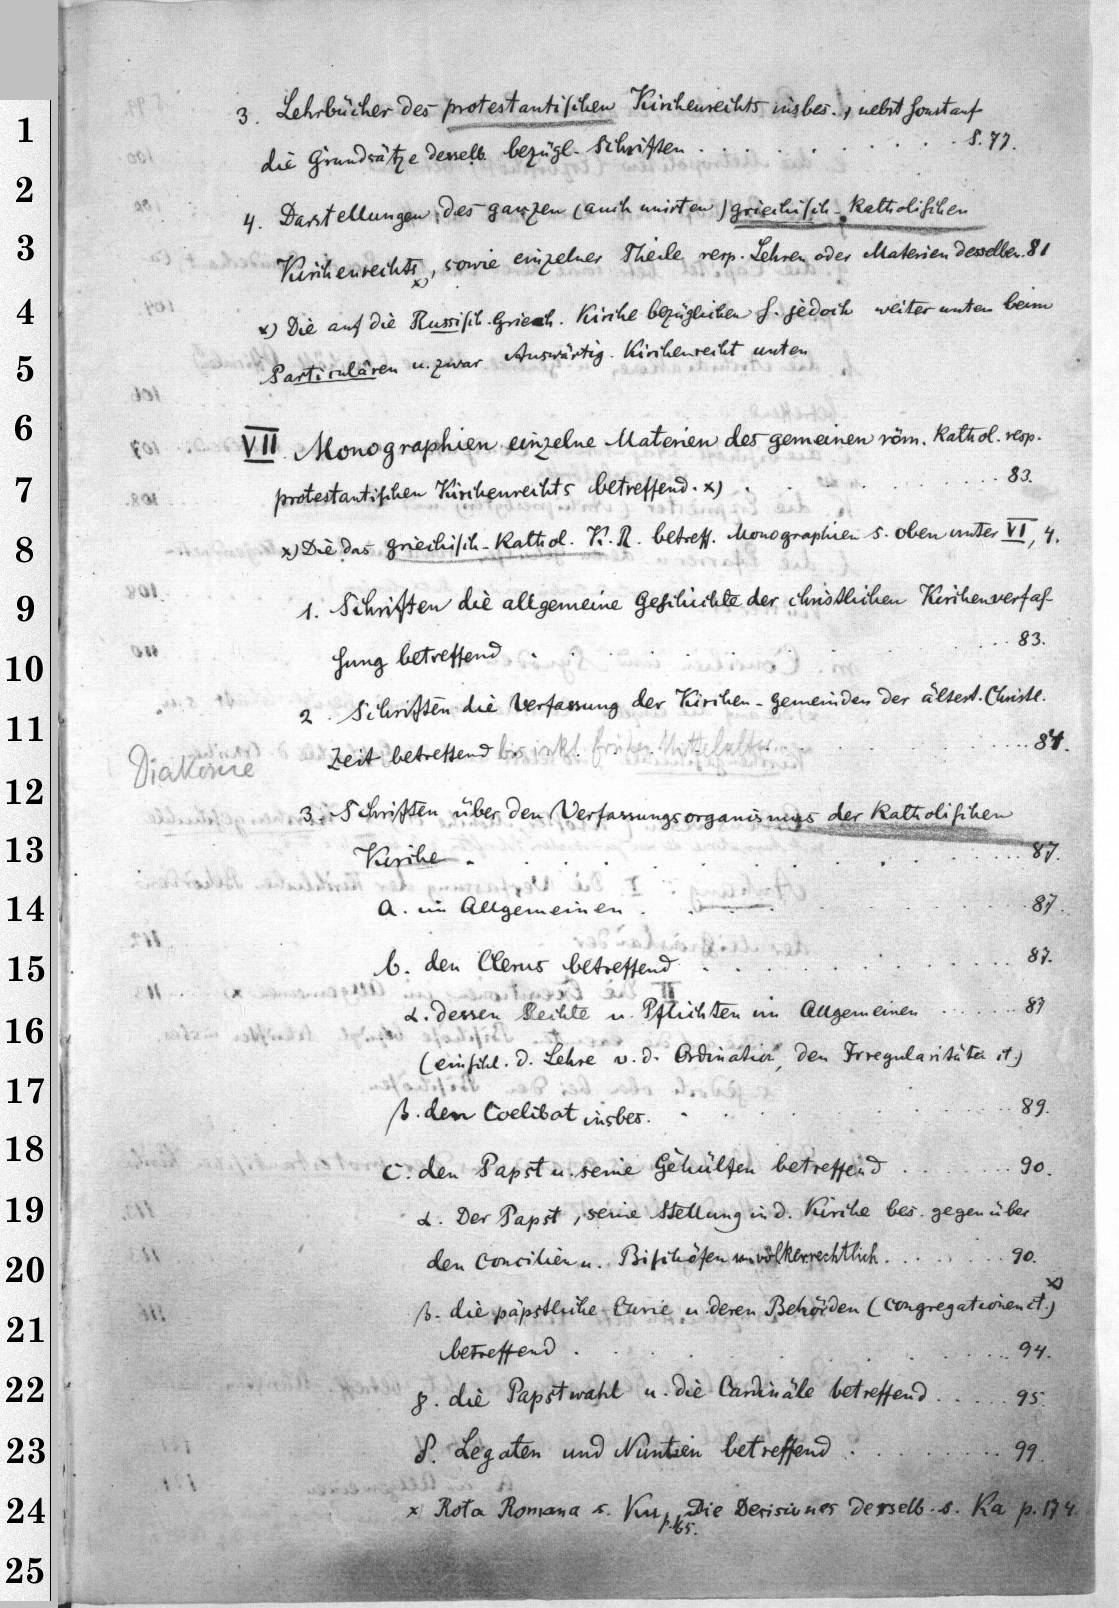 3. Lehrbücher des protestantischen Kirchenrechts insbes., nebst sonst auf
die Grundsätze desselb. bezügl. Schriften . . . . . . . . . . S. 77.
4. Darstellungen, des ganzen (auch unirten) griechisch-katholischen
Kirchenrechts x), sowie einzelner Theile resp. Lehren oder Materien desselben. 81
x) Die auf die Russisch. Griech. Kirche bezüglichen s. jedoch weiter unten beim
Particulären u. zwar Auswärtig. Kirchenrecht unten
VII. Monographien einzelne Materien des gemeinen röm. kathol. resp.
protestantischen Kirchenrechts betreffend. x) . . . . . . . . 83.
x) Die das griechisch-kathol. K.R. betreff. Monographien s. oben unter VI, 4.
1. Schriften die allgemeine Geschichte der christlichen Kirchenverfas-
sung betreffend . . . . . . . . 83.
2. Schriften die Verfassung der Kirchen-gemeinden der ältest. Christl.
Zeit betreffend bis inkl. frühes Mittelalter . . . . . . 84.
Diakonie
3. Schriften über den Verfassungsorganismus der katholischen
Kirche . . . . . . . . . . 87.
a. im Allgemeinen . . . . . . . . 87.
b. den Clerus betreffend . . . . . . . . 87.
α. dessen Rechte u. Pflichten im Allgemeinen . . . . . . 87
(einschl. d. Lehre v. d. Ordination, den Irregularitäten ct.)
β. den Coelibat insbes. . . . . . . . . 89.
c. den Papst u. seine Gehülfen betreffend . . . . . . 90.
α. Der Papst, seine Stellung in d. Kirche bes. gegenüber
den Concilien u. Bischöfen u. völkerrechtlich . . . . . . 90.
β. die päpstliche Curie u. deren Behörden (Congregationen ct.) x)
betreffend . . . . . . . . 94.
γ. die Papstwahl u. die Cardinäle betreffend . . . . . 95.
δ. Legaten und Nuntien betreffend . . . . . . . 99.
x) Rota Romana s. p. 165. Die Decisiones desselb. s. Ka p. 174.
1
2
3
4
5
6
7
8
9
10
11
12
13
14
15
16
17
18
19
20
21
22
23
24
25